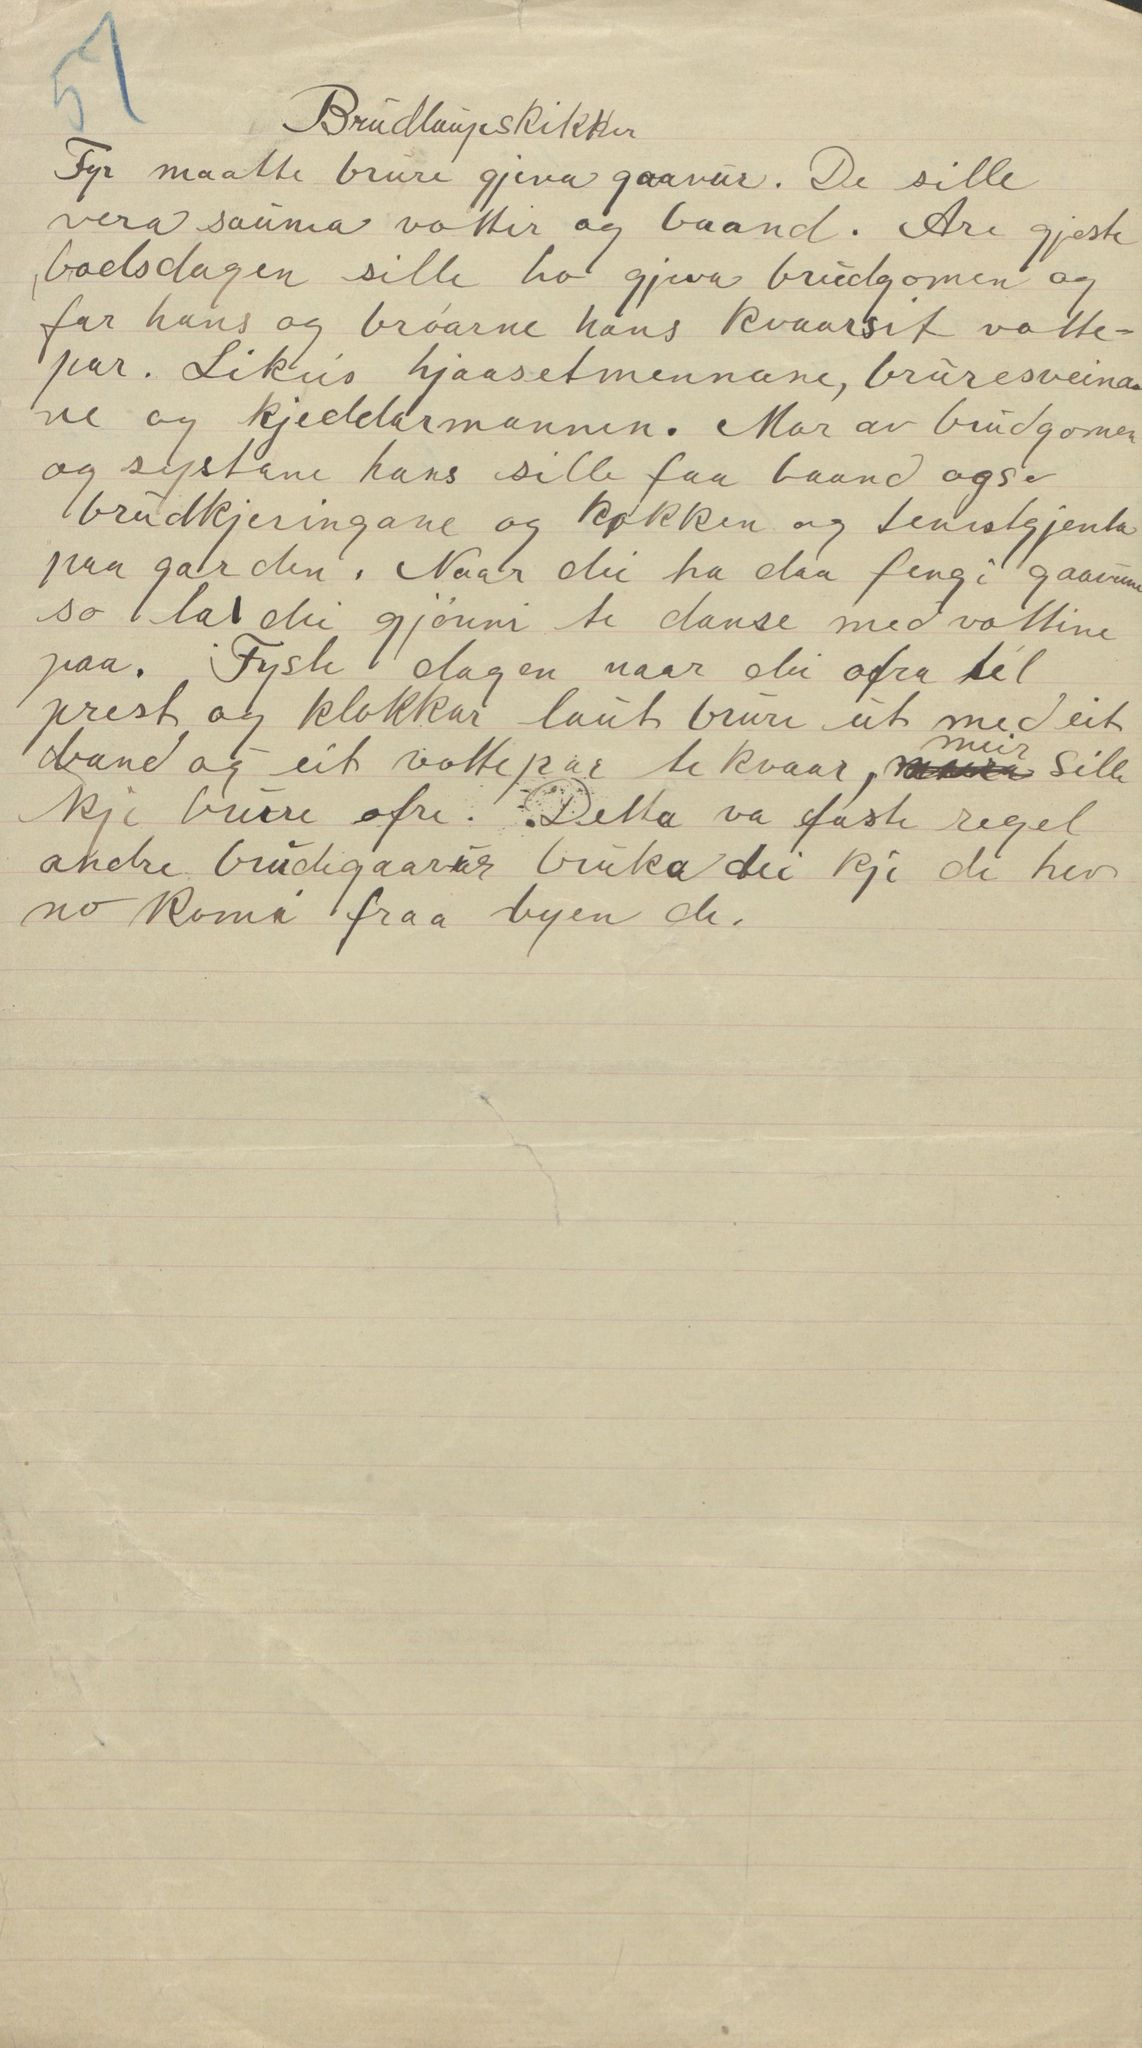 57
Brudlaupskikker
Fyr maatte brure gjeva gaavur. De sille
vera sauma vottir og baand. Are gjeste
bodsdagen sille ho gjeva brudgomen og
far hans og brøarne hans kvaarsit votte-
par. Likeis hjaasetmennane, bruresveina-
ne og kjeddarmannen. Mor av brudgomen
og systane hans sille faa baand ogso
brudkjeringane og kokken og tenistgjenta
paa garden. Naar dei ha daa fengi gaavune
so la dei gjønni te danse med vottine
paa. Fyste dagen naar dei ofra til
prest og klokkar laut brure ut med eit
band og eit vottepar te kvaar, meir sille
kje brure ofre. Detta va faste regel
andre brudegaavur bruka dei kje de hev
no komi fraa byen de.